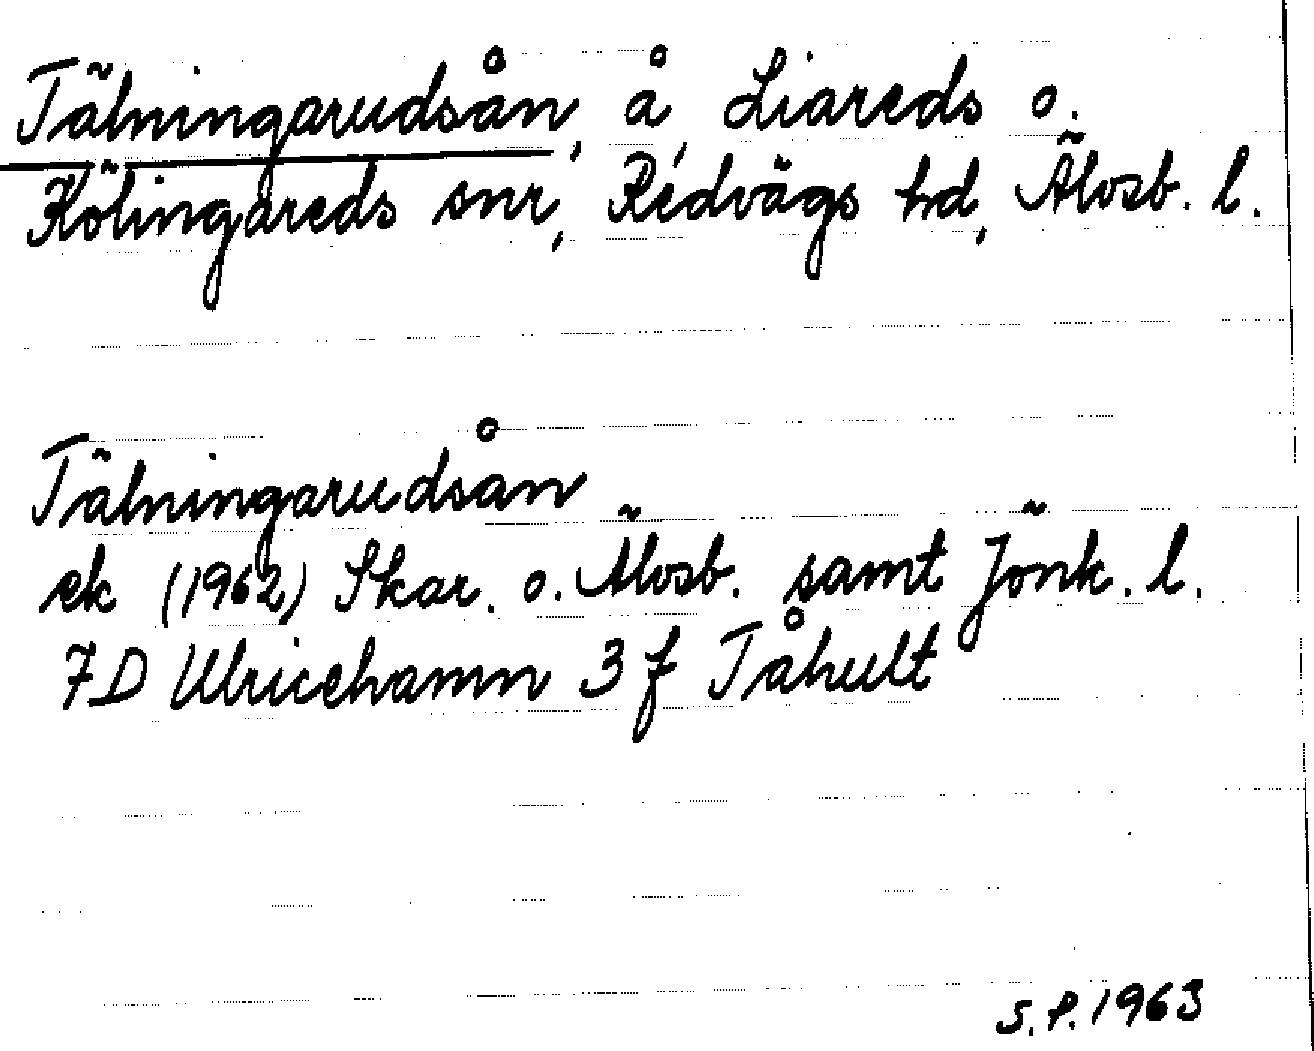 Tälningarudsån, å, Liareds o.
Kölingareds snr, Redvägs hd, Älvsb. l.
Tälningarudsån
ek (1962) Skar. o. Älvsb. samt Jönk. l.
7D Ulricehamn 3 f Tåhult
S.P. 1963